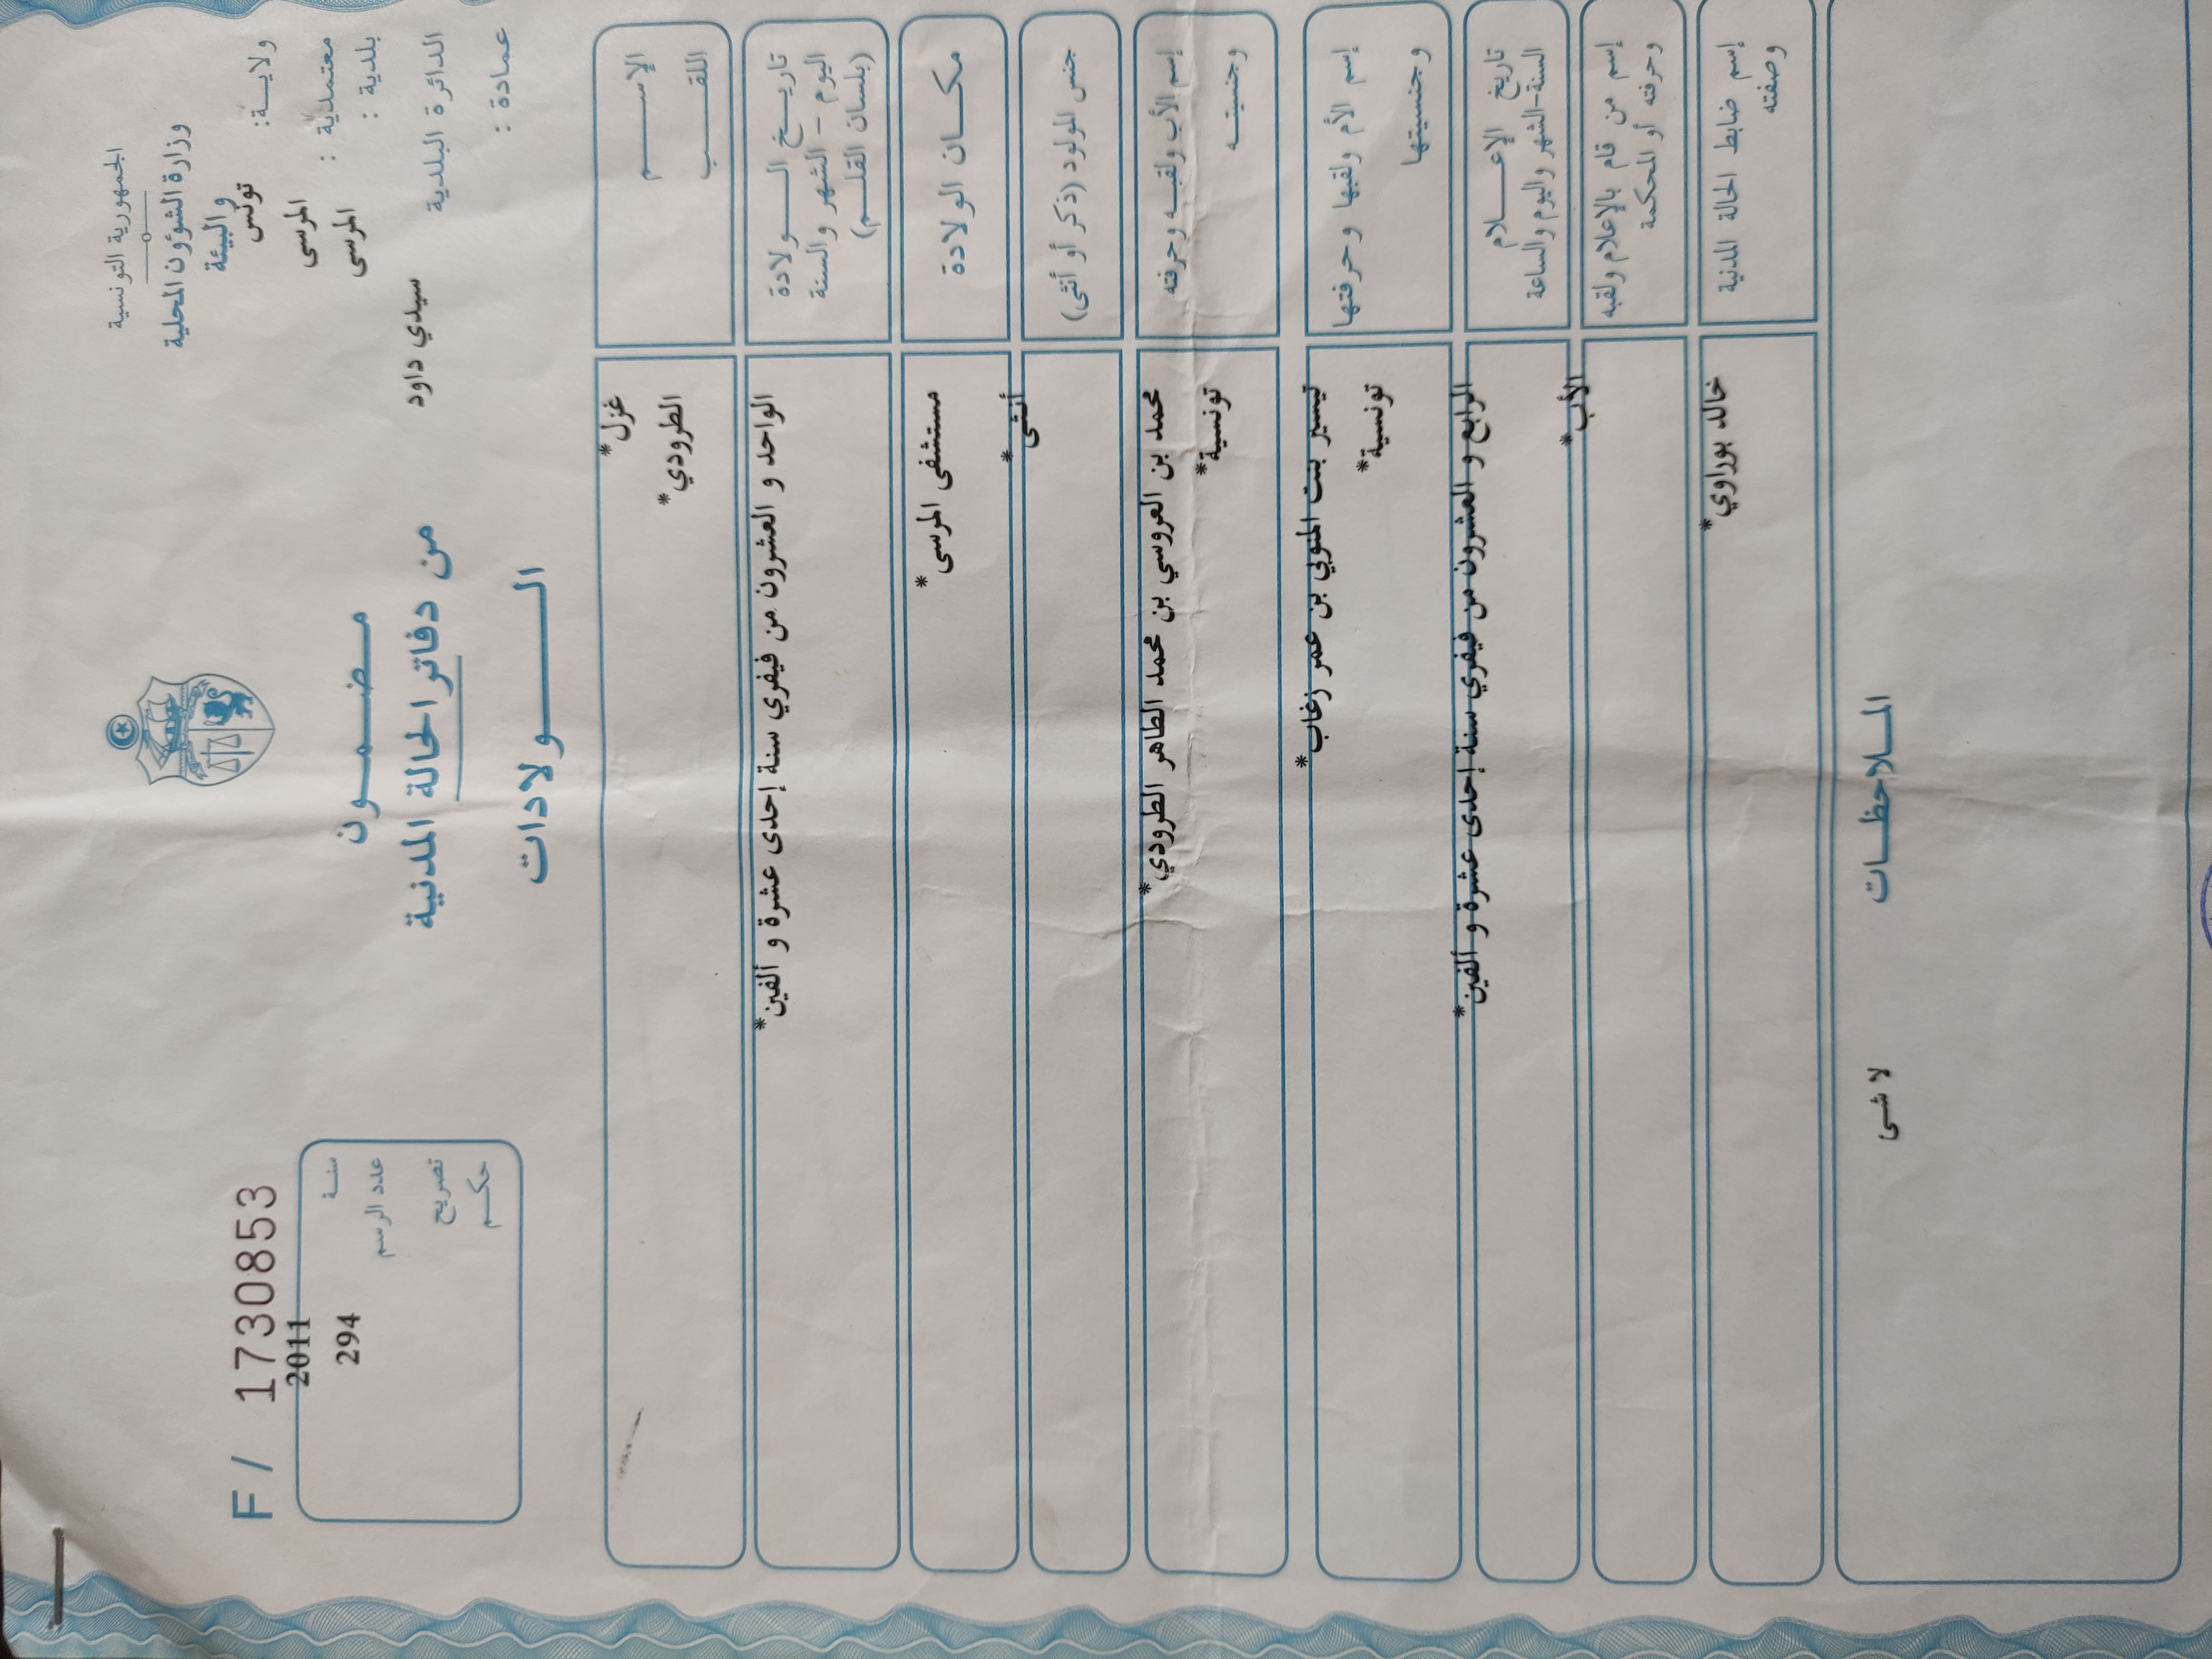 الجمهورية التونسية
وزارة الشؤون المحلية
و البيئة
ولايــة: تونس
معتمدية : المرسى
بلدية : المرسى
الدائرة البلدية سيدي داود
عمادة :
مـضـمـــون
من دفاتر الحالة المدنية
الـــولادات
F / 1730853
سنــة 2011
عدد الرسم 294
تصريح
حكــم
الإســـــم غزل*
اللقــــب الطرودي*
تاريــخ الـــولادة الواحد و العشرون من فيفري سنة إحدى عشرة و ألفين*
اليوم – الشهر والسنة
(بلسان القلــم)
مكــان الولادة مستشفى المرسى*
جنس المولود (ذكر أو أنثى) أنثى*
إسم الأب ولقبــه وحرفته محمد بن العروسي بن محمد الطاهر الطرودي*
وجنسيتــه تونسية*
إسم الأم ولقبها وحرفتها تيسير بنت المنوبي بن عمر زغاب*
وجنسيتها تونسية*
تاريخ الإعـــلام الرابع و العشرون من فيفري سنة إحدى عشرة و ألفين*
السنة-الشهر واليوم والساعة
إسم من قام بالإعلام ولقبه الأب*
وحرفته أو المحكمة
إسم ضابط الحالة المدنية خالد بوراوي*
وصفته
المــلاحظــات
لا شى